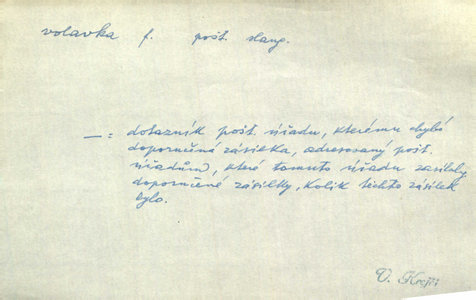 volavka f. pošt. slang.
— = dotazník pošt. úřadu, kterému chybí
doporučená zásilka, adresovaný pošt.
úřadům, které tomuto úřadu zasílaly
doporučené zásilky, kolik těchto zásilek
bylo.
V. Krejří